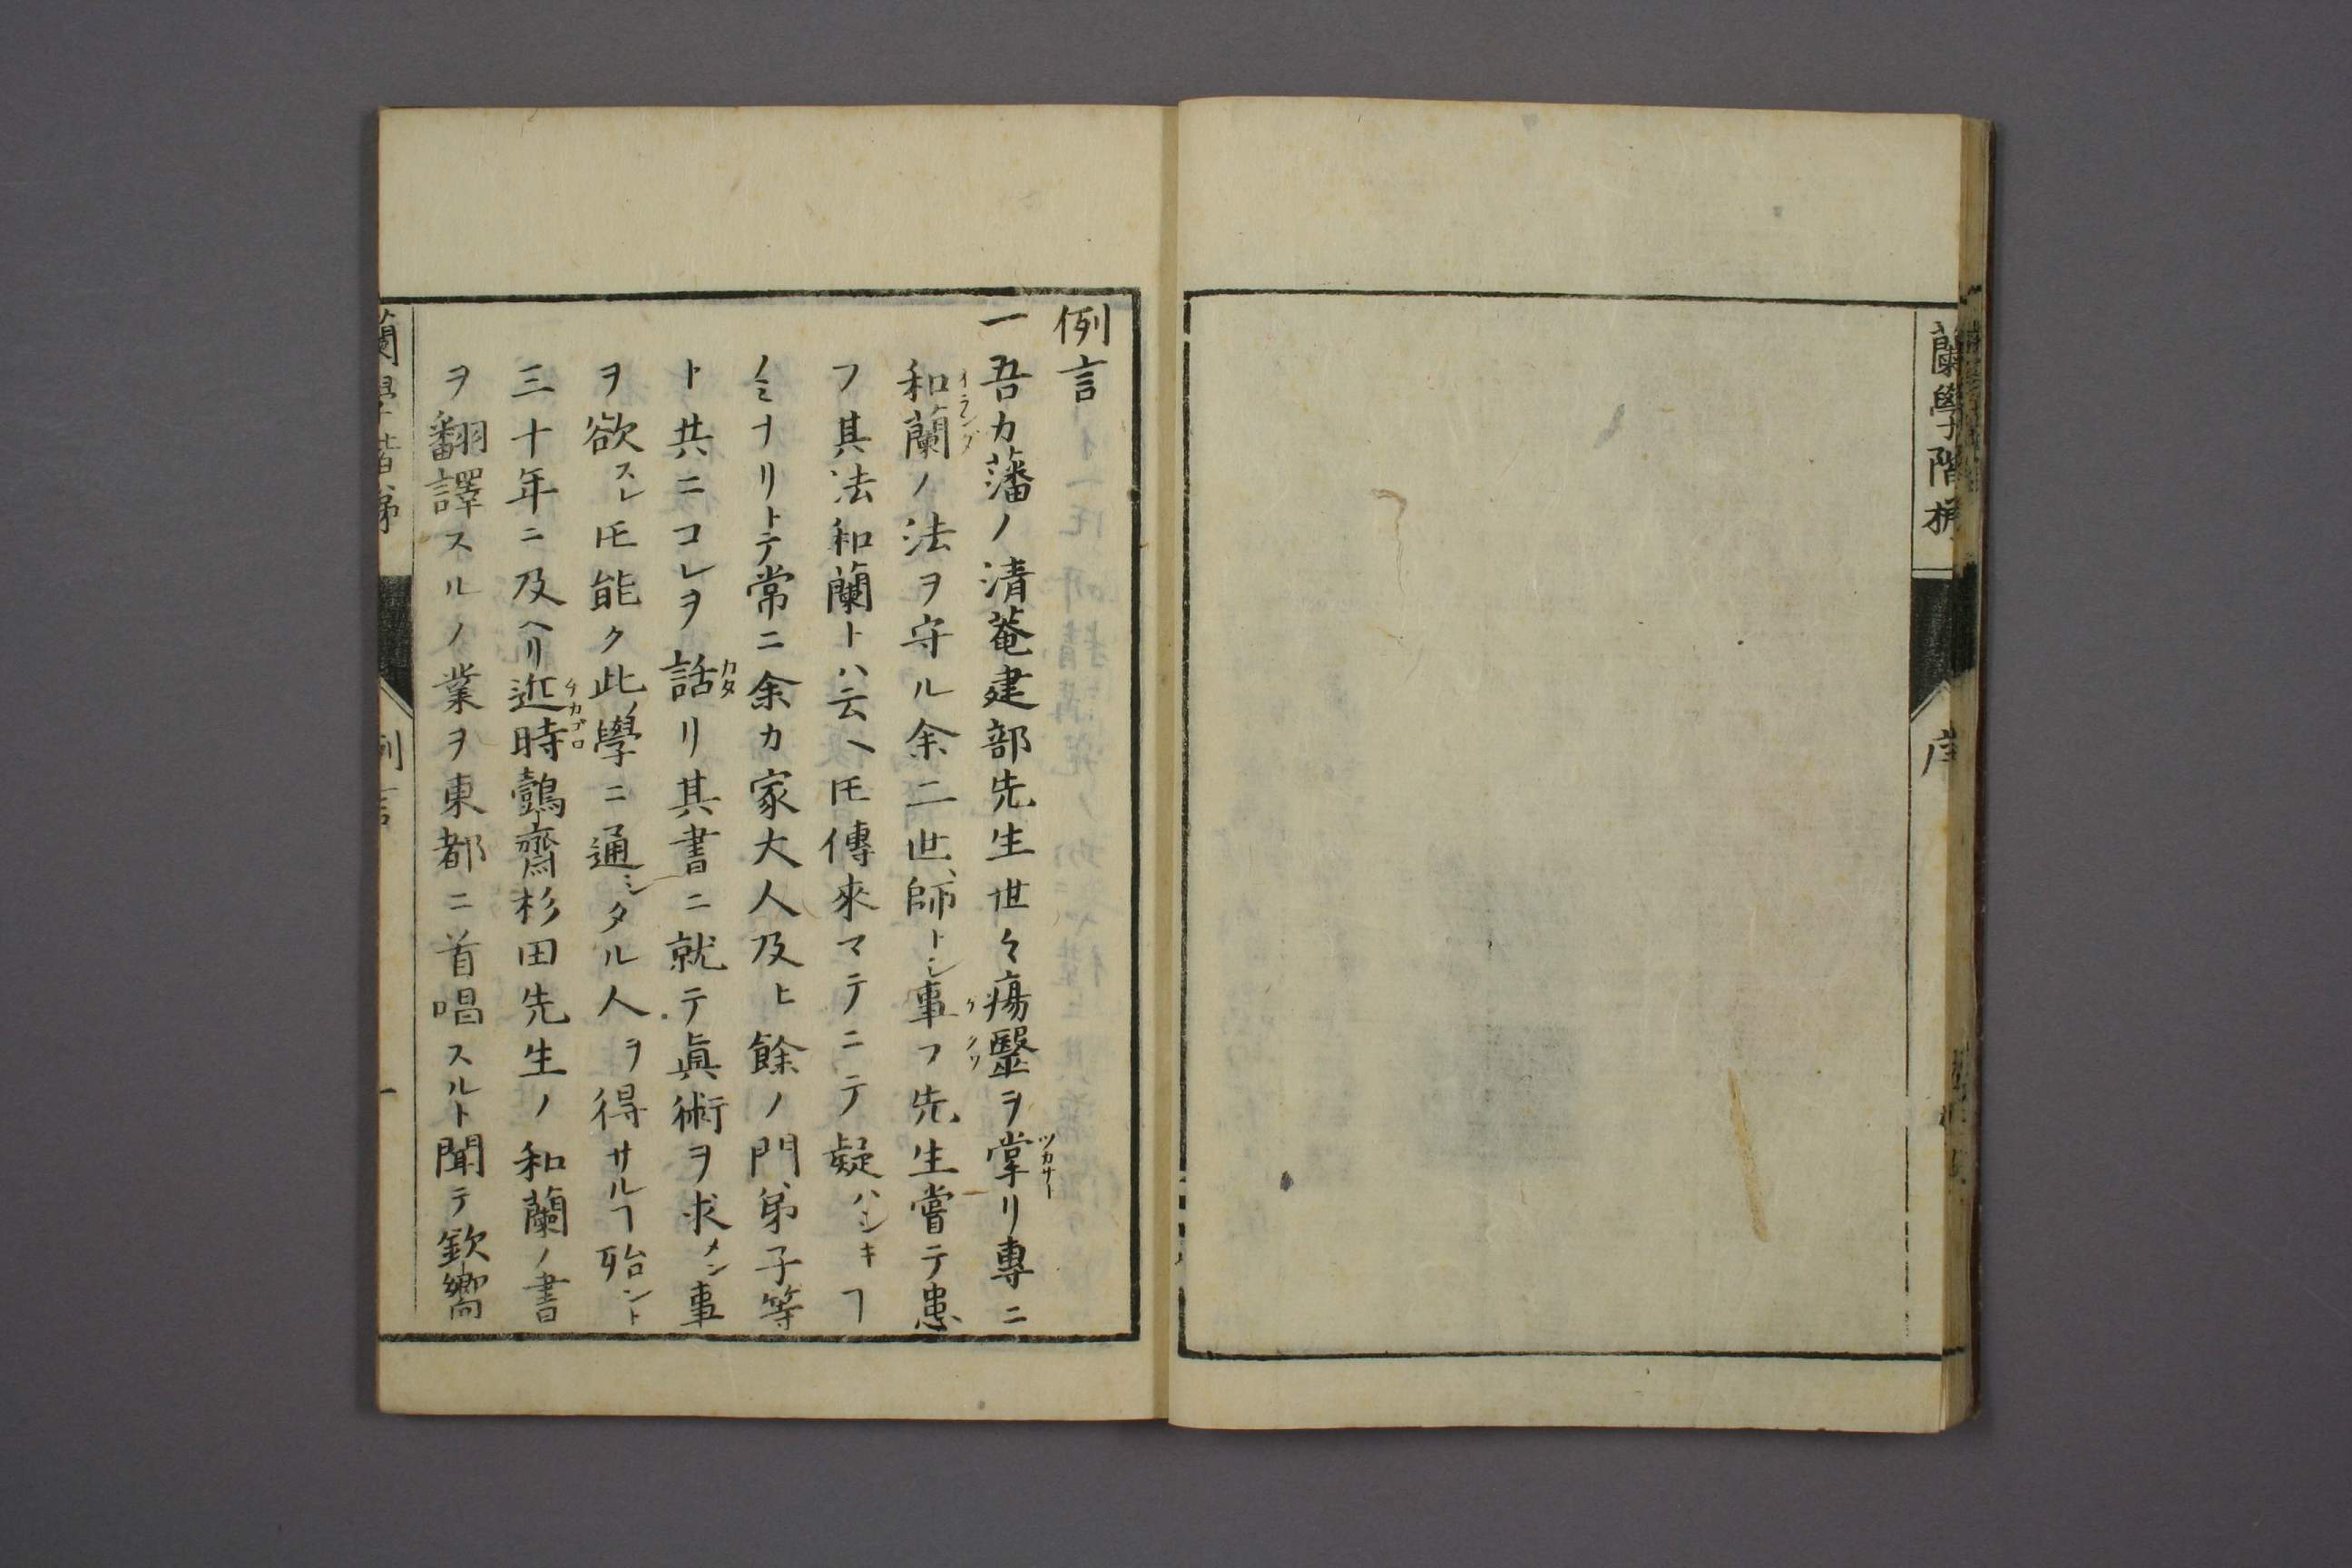 蘭學階梯
序
例言
一吾カ藩ノ清菴建部先生世々瘍毉ヲ掌リ專ニ
和蘭ノ法ヲ守ル余二世師トシ事フ先生嘗テ患
フ其法和蘭トハ云ヘ𪜈傳來マテニテ疑ハシキヿ
ノミナリトテ常ニ余カ家大人及ヒ餘ノ門弟子等
ト共ニコレヲ話リ其書ニ就テ眞術ヲ求メン事
ヲ欲スレ𪜈能ク此學ニ通シタル人ヲ得サルヿ殆ント
三十年ニ及ヘリ近時鷧齋杉田先生ノ和蘭ノ書
ヲ翻譯スルノ業ヲ東都ニ首唱スルト聞テ欽嚮
蘭學階梯
例言
一